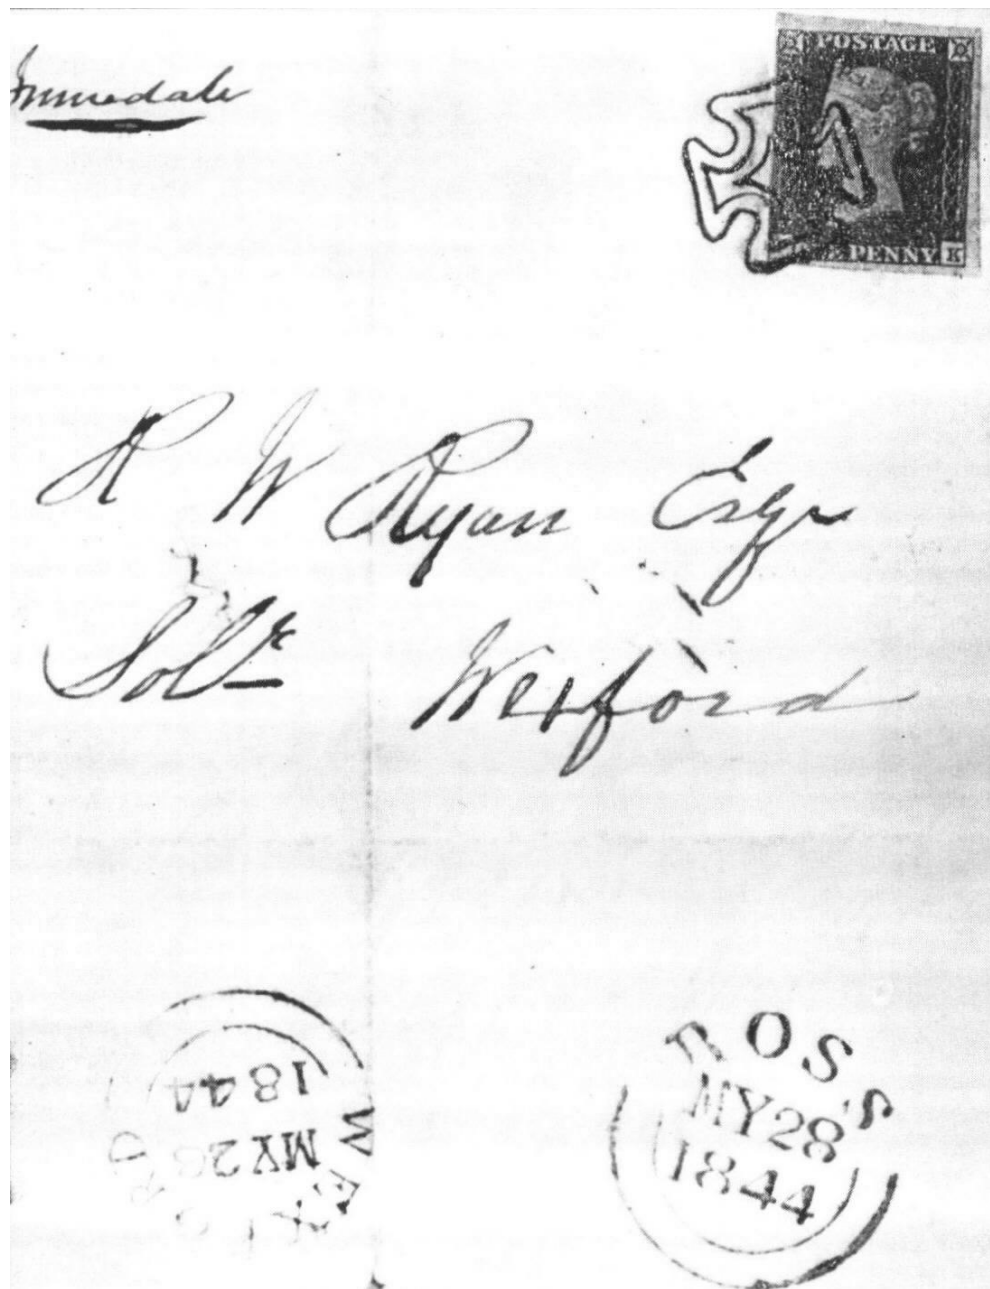 Immediate
POSTAGE
PENNY K
R W Ryan Esqr
Solr Wexford
WEXFORD
MY 28
1844
ROSS
MY 28
1844